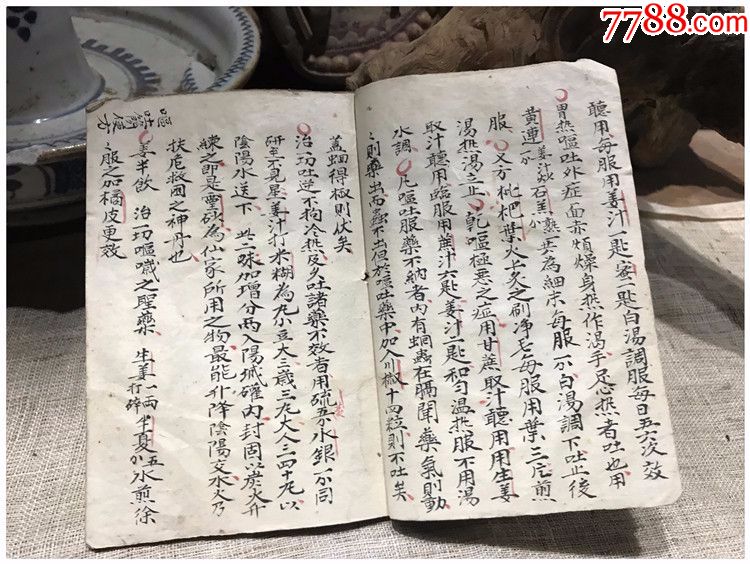 7788.com
聽用每服用姜汁一匙蜜一匙白湯調服每日五六次效
胃热嘔吐外症面赤煩燥身热作渴手足心热者吐也用
黄連 姜汁 石羔 为細末每服 白湯調下吐止後
服 又方枇杷葉火上炙之刷净毛每服用葉三片煎
湯热湯立止 乾嘔極惡之症用甘蔗取汁聽用用生姜
取汁聽用臨服用蔗汁六匙姜汁一匙和匀温热服不用湯
水調 凡嘔吐服藥不納者内有蛔虫在膈間藥氣則動
則藥出而虫不出但於嘔吐藥中加入川椒十四粒則不吐矣
蓋蛔得椒則伏矣
治一切吐逆不拘冷热及久吐諸藥不效者用硫 水銀 同
研至不見星姜汁打米糊為丸小豆大三歲三丸大人三四十丸以
陰陽水送下 此二味加增分两入陽城確内封固以炭火升
錬之即是靈砂為仙家所用之物最能升降陰陽交水火乃
扶危救困之神丹也
嘔噦類便方
姜半飲 治一切嘔噦之聖藥 生姜一两打碎 半夏五 水煎徐
服之加橘皮更效